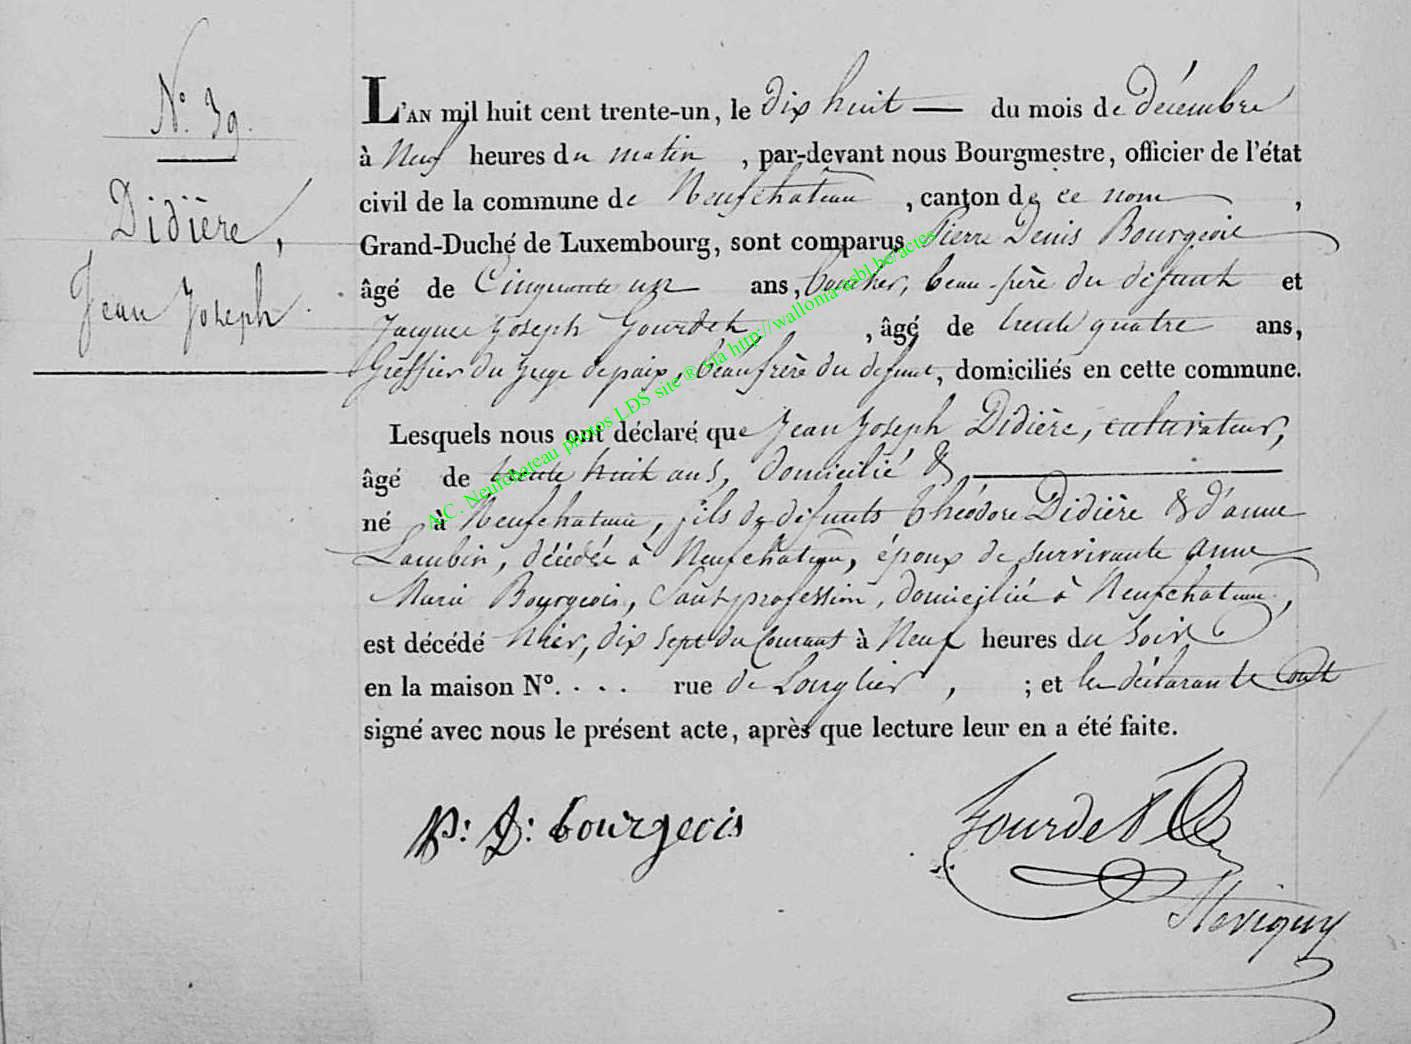 N.º 39.
Didière,
Jean Joseph
L'AN mil huit cent trente-un, le dix huit — du mois de décembre
à Neuf heures du matin, par-devant nous Bourgmestre, officier de l'état
civil de la commune de Neufchateau, canton de ce nom,
Grand-Duché de Luxembourg, sont comparus Pierre Denis Bourgeois
âgé de Cinquante un ans, boucher, beau-père du défunt et
Jacques Joseph Gourdet, âgé de trente quatre ans,
Greffier du Juge de paix, beau frère du defunt, domiciliés en cette commune.
Lesquels nous ont déclaré que Jean Joseph Didière, cultivateur,
âgé de trente huit ans, domicilié &
né à Neufchateau, fils de défunts Théodore Didière & d'anne
Lambin, décédée à Neufchâteau, époux de survivante anne
Marie Bourgeois, sans profession, domiciliée à Neufchateau,
est décédé hier, dix sept du Courant à Neuf heures du soir
en la maison Nº. . . . rue de Longlier, ; et les déclarants ont
signé avec nous le présent acte, après que lecture leur en a été faite.
P: D: bourgeois
Gourdet
A.C. Neufchateau photos LDS site ® via http://wallonia-asbl.be/actes